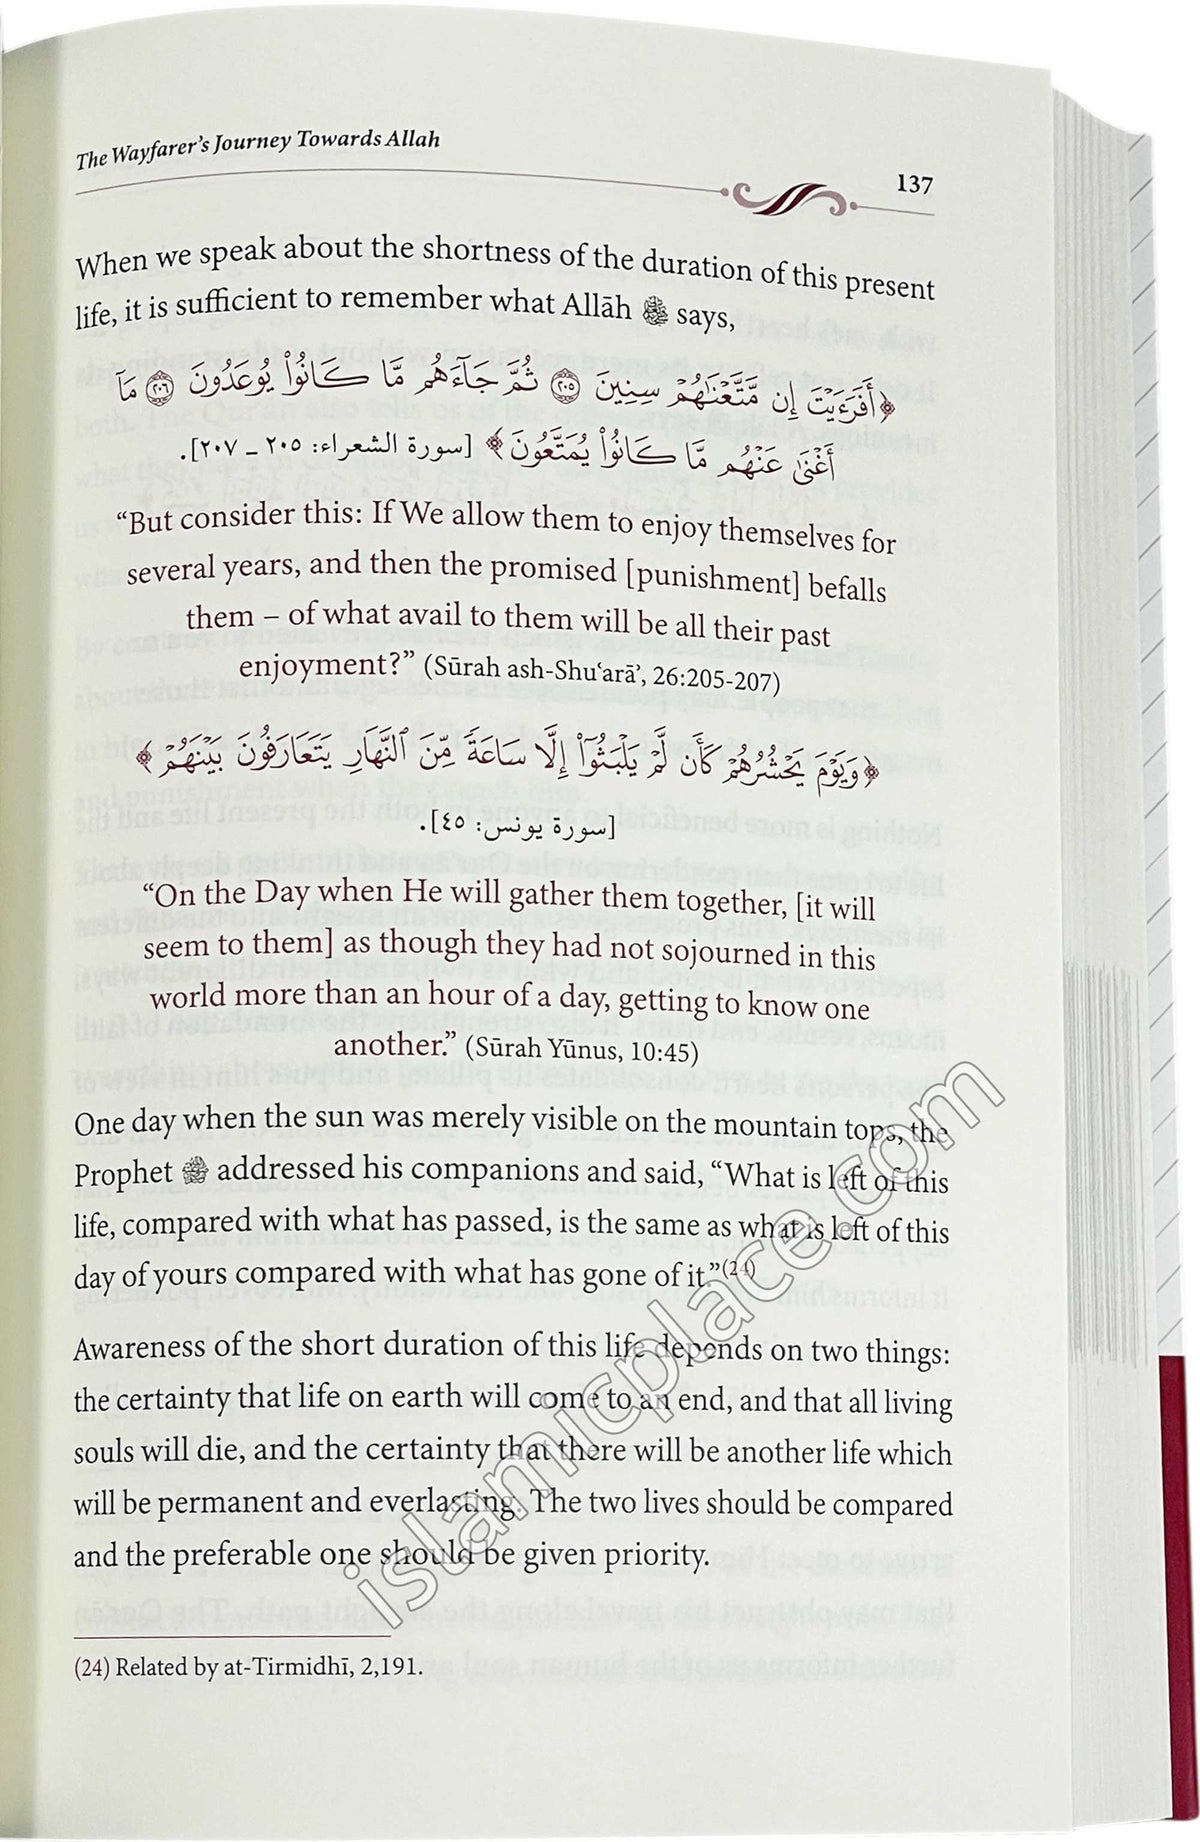 The Wayfarer's Journey Towards Allah
137
When we speak about the shortness of the duration of this present
life, it is sufficient to remember what Allāh ﷻ says,
﴿أَفَرَءَيْتَ إِن مَّتَّعْنَٰهُمْ سِنِينَ ٢٠٥ ثُمَّ جَآءَهُم مَّا كَانُوا۟ يُوعَدُونَ ٢٠٦ مَآ
أَغْنَىٰ عَنْهُم مَّا كَانُوا۟ يُمَتَّعُونَ﴾ [سورة الشعراء: ٢٠٥ – ٢٠٧].
“But consider this: If We allow them to enjoy themselves for
several years, and then the promised [punishment] befalls
them – of what avail to them will be all their past
enjoyment?” (Sūrah ash-Shuʿarāʾ, 26:205-207)
﴿وَيَوْمَ يَحْشُرُهُمْ كَأَن لَّمْ يَلْبَثُوٓا۟ إِلَّا سَاعَةً مِّنَ ٱلنَّهَارِ يَتَعَارَفُونَ بَيْنَهُمْ﴾
[سورة يونس: ٤٥].
“On the Day when He will gather them together, [it will
seem to them] as though they had not sojourned in this
world more than an hour of a day, getting to know one
another.” (Sūrah Yūnus, 10:45)
One day when the sun was merely visible on the mountain tops, the
Prophet ﷺ addressed his companions and said, “What is left of this
life, compared with what has passed, is the same as what is left of this
day of yours compared with what has gone of it.”(24)
Awareness of the short duration of this life depends on two things:
the certainty that life on earth will come to an end, and that all living
souls will die, and the certainty that there will be another life which
will be permanent and everlasting. The two lives should be compared
and the preferable one should be given priority.
(24) Related by at-Tirmidhī, 2,191.
islamicplace.com